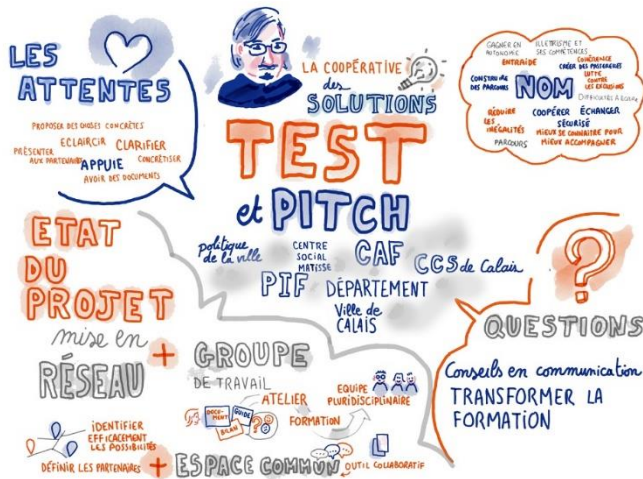 LES
ATTENTES
PROPOSER DES CHOSES CONCRÈTES
ECLAIRCIR
CLARIFIER
PRÉSENTER
AUX PARTENAIRES
APPUIE
CONCRÉTISER
AVOIR DES DOCUMENTS
LA COOPÉRATIVE
des
SOLUTIONS
TEST
et PITCH
GAGNER EN
AUTONOMIE
ILLETTRISME ET
SES COMPÉTENCES
ENTRAIDE
COHÉRENCE
CRÉER DES PASSERELLES
CONSTRUIRE
DES PARCOURS
NOM
LUTTE
CONTRE
LES EXCLUSIONS
RÉDUIRE
LES
INÉGALITÉS
COOPÉRER
ÉCHANGER
SÉCURISÉ
PARCOURS
MIEUX SE CONNAITRE POUR
MIEUX ACCOMPAGNER
politique
de la ville
CENTRE
SOCIAL
MATISSE
CAF
CCS de Calais
PIF
DÉPARTEMENT
Ville de
CALAIS
ETAT
DU
PROJET
mise en
RÉSEAU
+
GROUPE
DE TRAVAIL
ATELIER
DOCUMENT
GUIDE
BILAN
??
FORMATION
EQUIPE
PLURIDISCIPLINAIRE
IDENTIFIER
EFFICACEMENT
LES POSSIBILITÉS
DÉFINIR LES PARTENAIRES
+
ESPACE COMMUN
OUTIL COLLABORATIF
?
QUESTIONS
Conseils en communication
TRANSFORMER LA
FORMATION